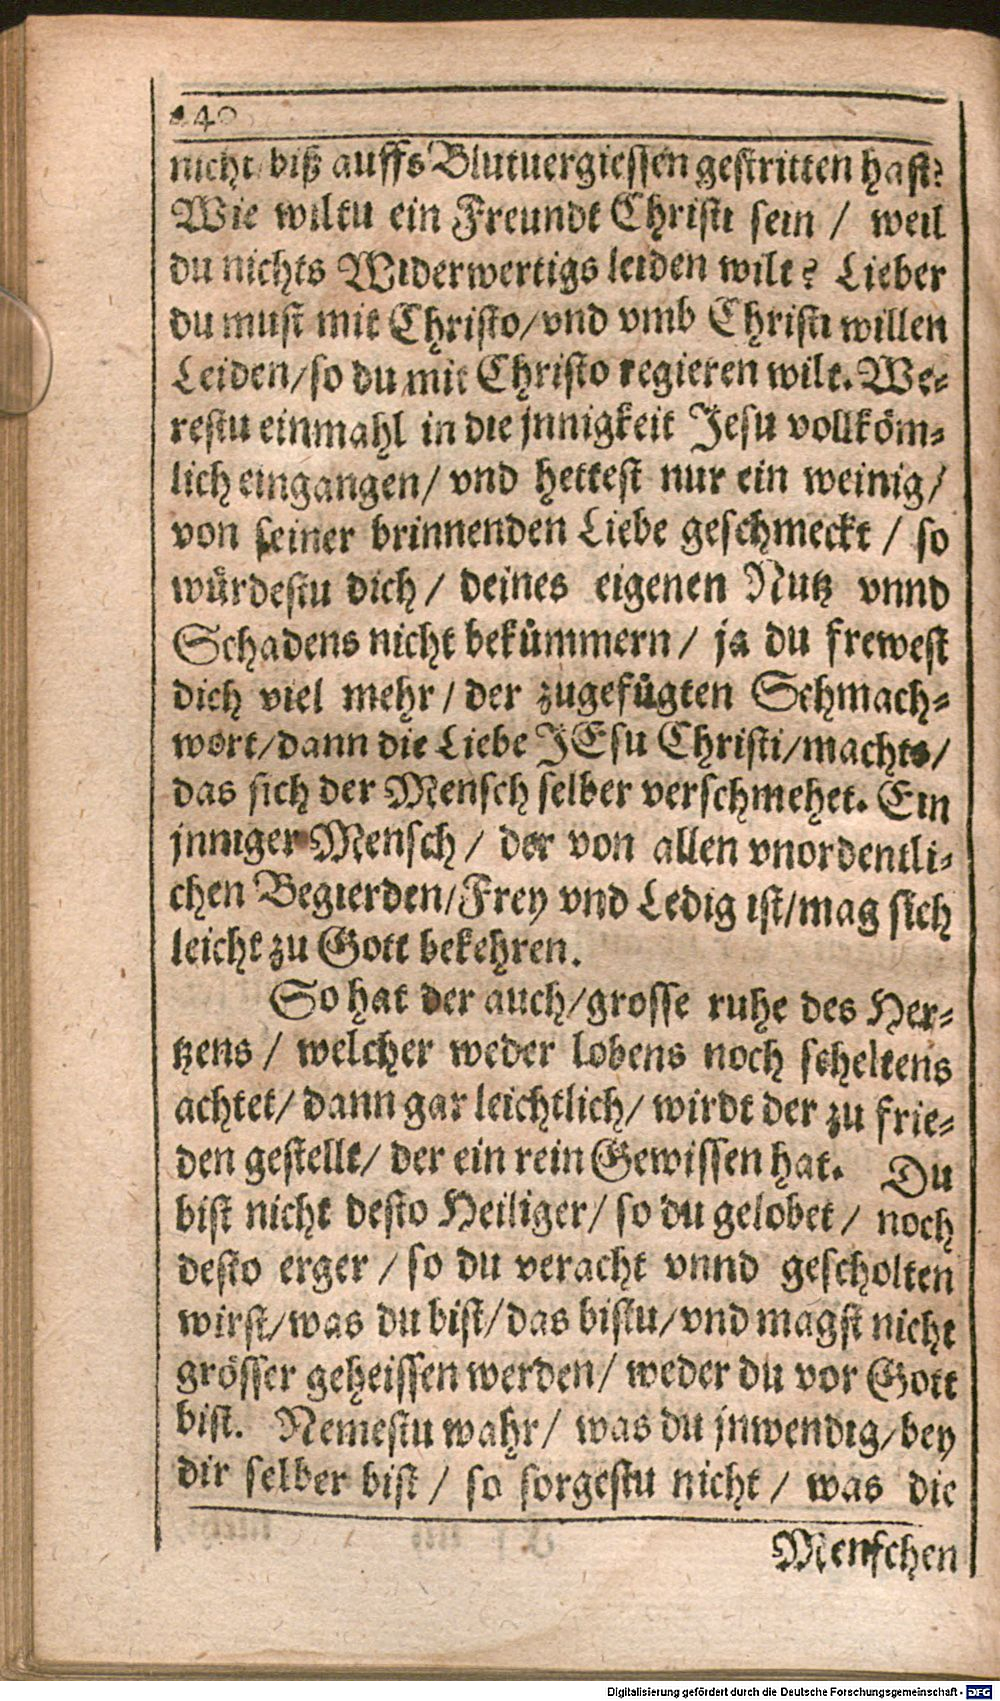 440
nicht biß auffs Blutuergiessen gestritten hast?
Wie wiltu ein Freundt Christi sein / weil
du nichts Widerwertigs leiden wilt? Lieber
du must mit Christo/vnd vmb Christi willen
Leiden/so du mit Christo regieren wilt. We-
restu einmahl in die jnnigkeit Jesu vollköm-
lich eingangen/ vnd hettest nur ein weinig/
von seiner brinnenden Liebe geschmeckt / so
würdestu dich / deines eigenen Nutz vnnd
Schadens nicht bekümmern / ja du frewest
dich viel mehr / der zugefügten Schmach-
wort/dann die Liebe JEsu Christi/machts/
das sich der Mensch selber verschmehet. Ein
jnniger Mensch / der von allen vnordentli-
chen Begierden/Frey vnd Ledig ist/mag sich
leicht zu Gott bekehren.
So hat der auch/grosse ruhe des Her-
tzens / welcher weder lobens noch scheltens
achtet/ dann gar leichtlich/ wirdt der zu frie-
den gestellt/ der ein rein Gewissen hat. Du
bist nicht desto Heiliger/ so du gelobet / noch
desto erger / so du veracht vnnd gescholten
wirst/was du bist/das bistu/vnd magst nicht
grösser geheissen werden/ weder du vor Gott
bist. Nemestu wahr/ was du jnwendig/bey
dir selber bist / so sorgestu nicht / was die
Menschen
Digitalisierung gefördert durch die Deutsche Forschungsgemeinschaft - DFG